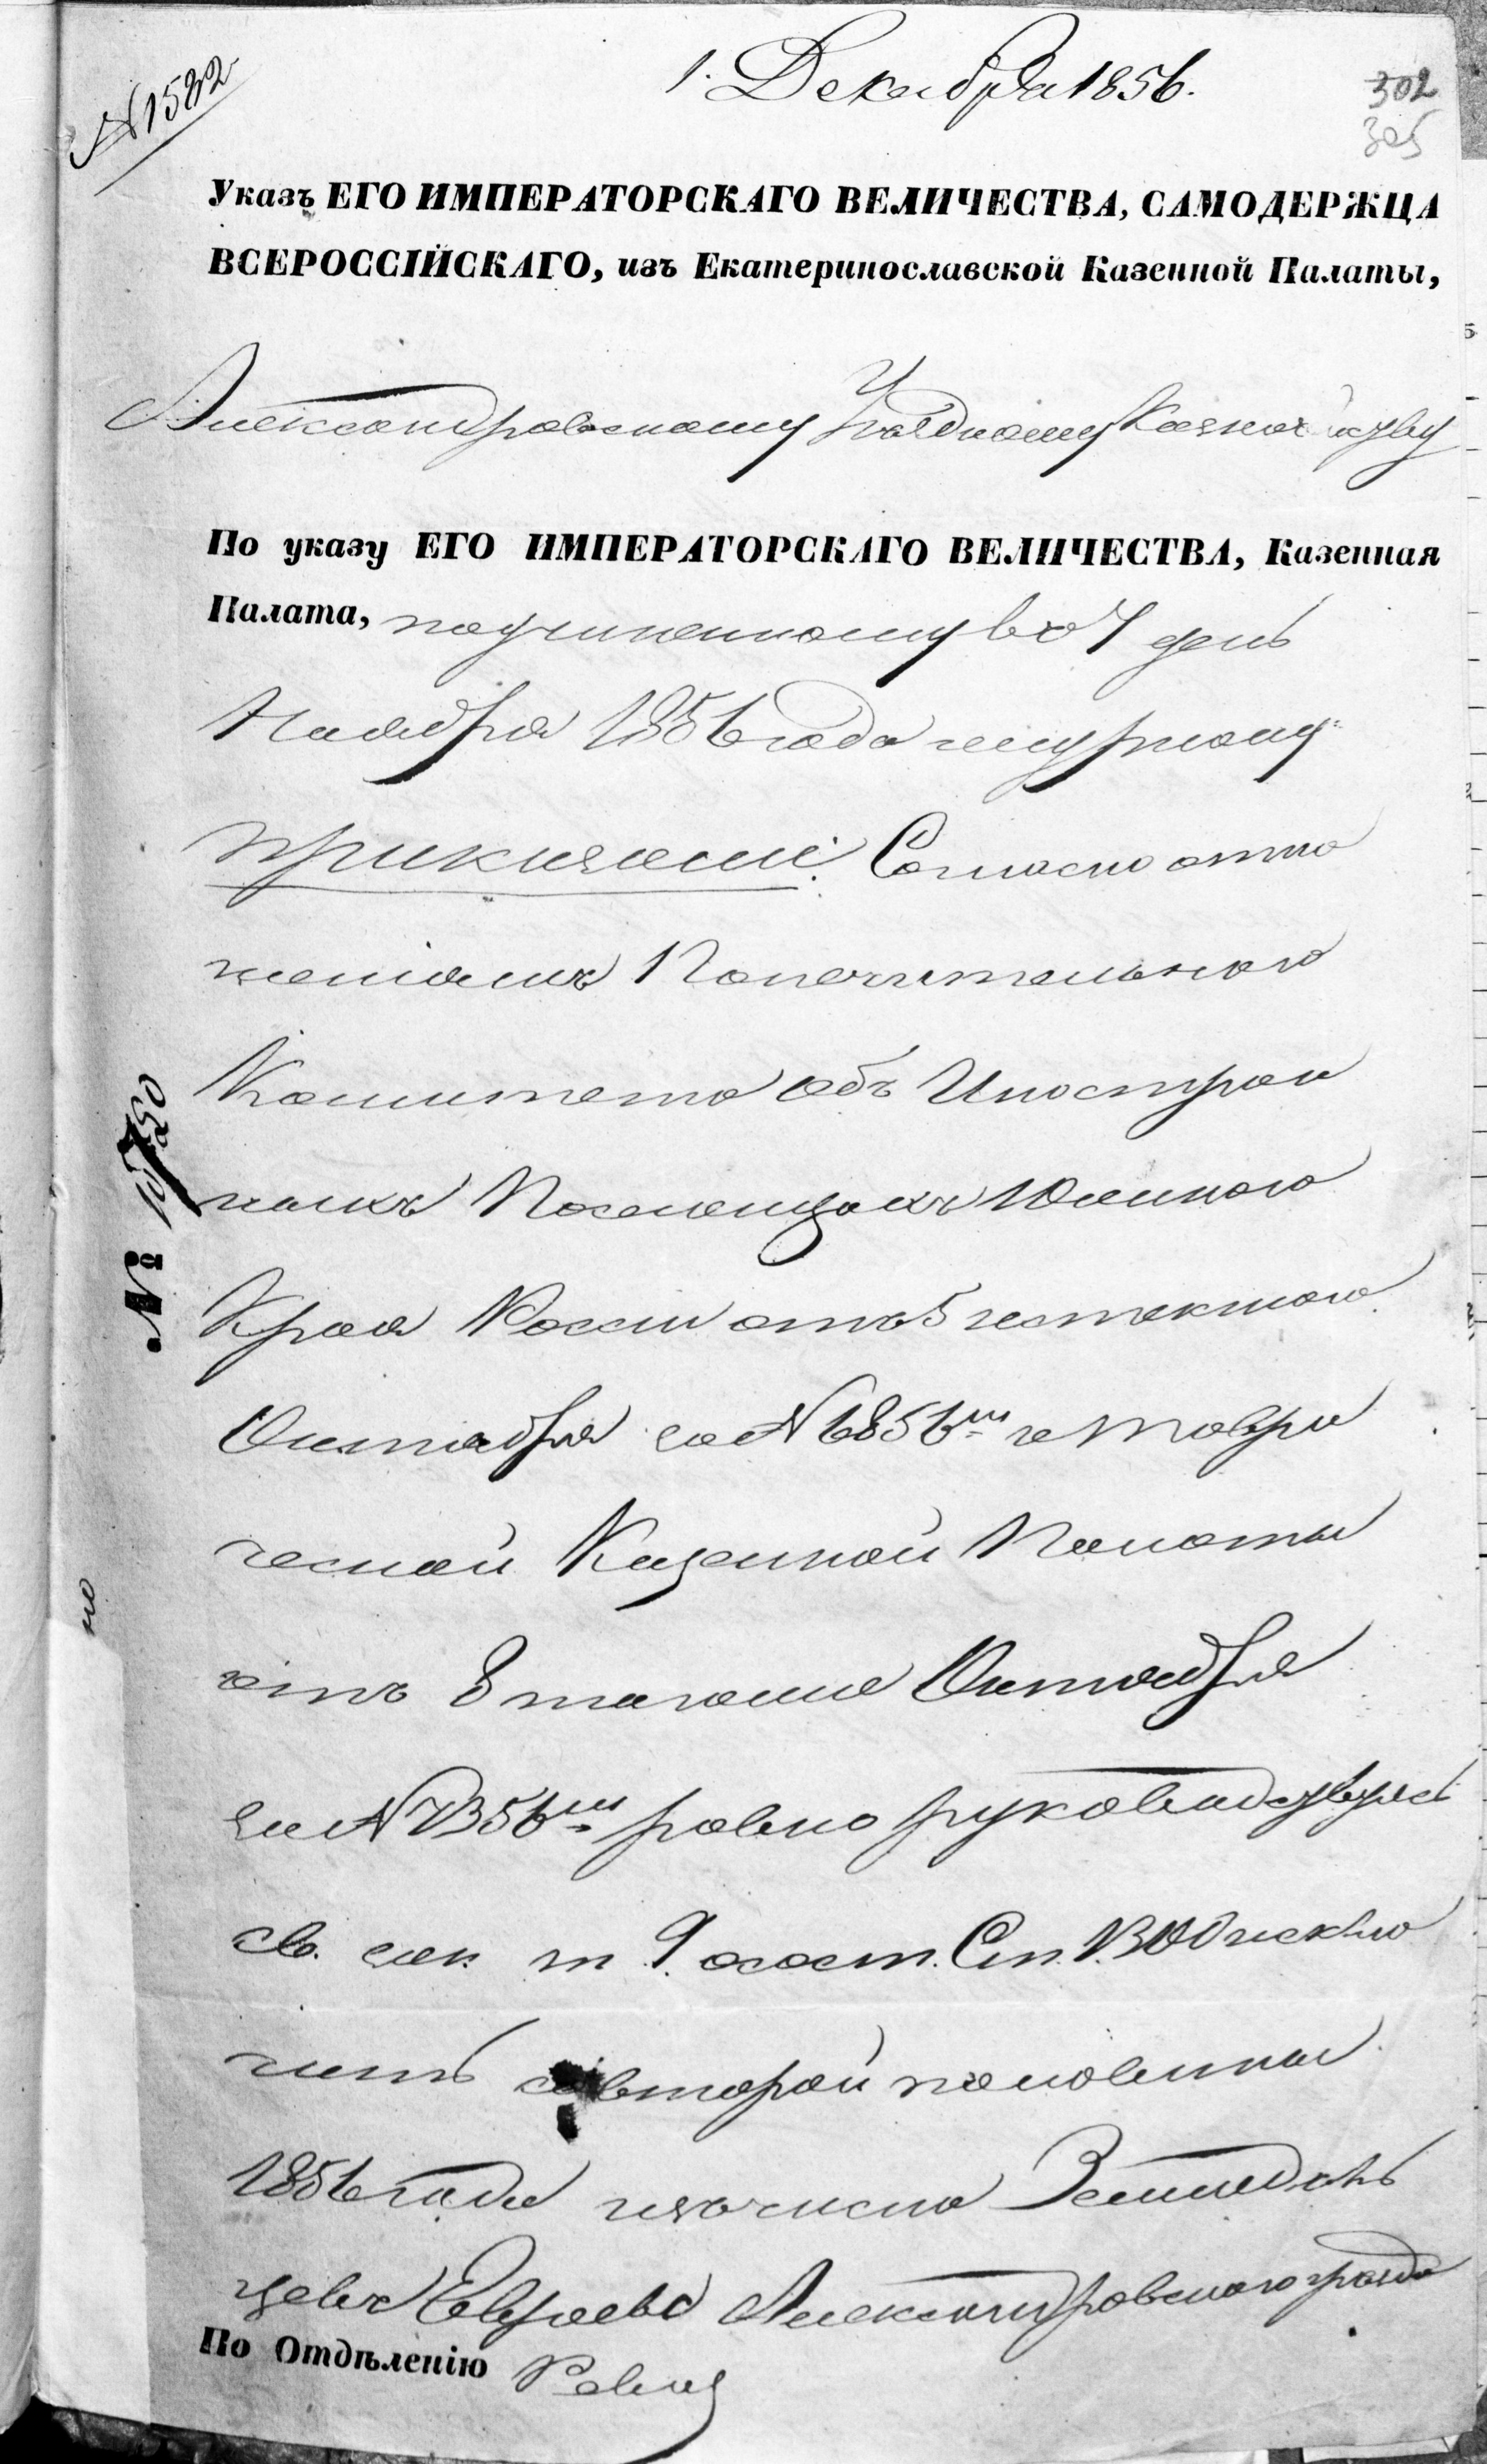 1. Декабря 1856.
N 1582
302
305
Указъ ЕГО ИМПЕРАТОРСКАГО ВЕЛИЧЕСТВА, САМОДЕРЖЦА
ВСЕРОССІЙСКАГО, изъ Екатеринославской Казенной Палаты,
Александровскому Уѣздному Казначейству
По указу ЕГО ИМПЕРАТОРСКАГО ВЕЛИЧЕСТВА, Казенная
Палата, подчиненному въ 7 день
Ноября 1856 года журналу
приказали: Согласно отно
шеніямъ Попечительнаго
Комитета объ Иностран
ныхъ Поселенцахъ Южнаго
Края Россіи отъ 5 истекшаго
Октября за N 6856м и Таври
ческой Казенной Палаты
отъ 8 того же Октября
за N 7356м равно руководствуясь
св. зак. т. 9 о сост. Ст. исклю
чить со второй половины
1856 года изъ числа Земледѣль
цевъ Евреевъ Александровского уѣзда
По Отдѣленію Ревиз
№